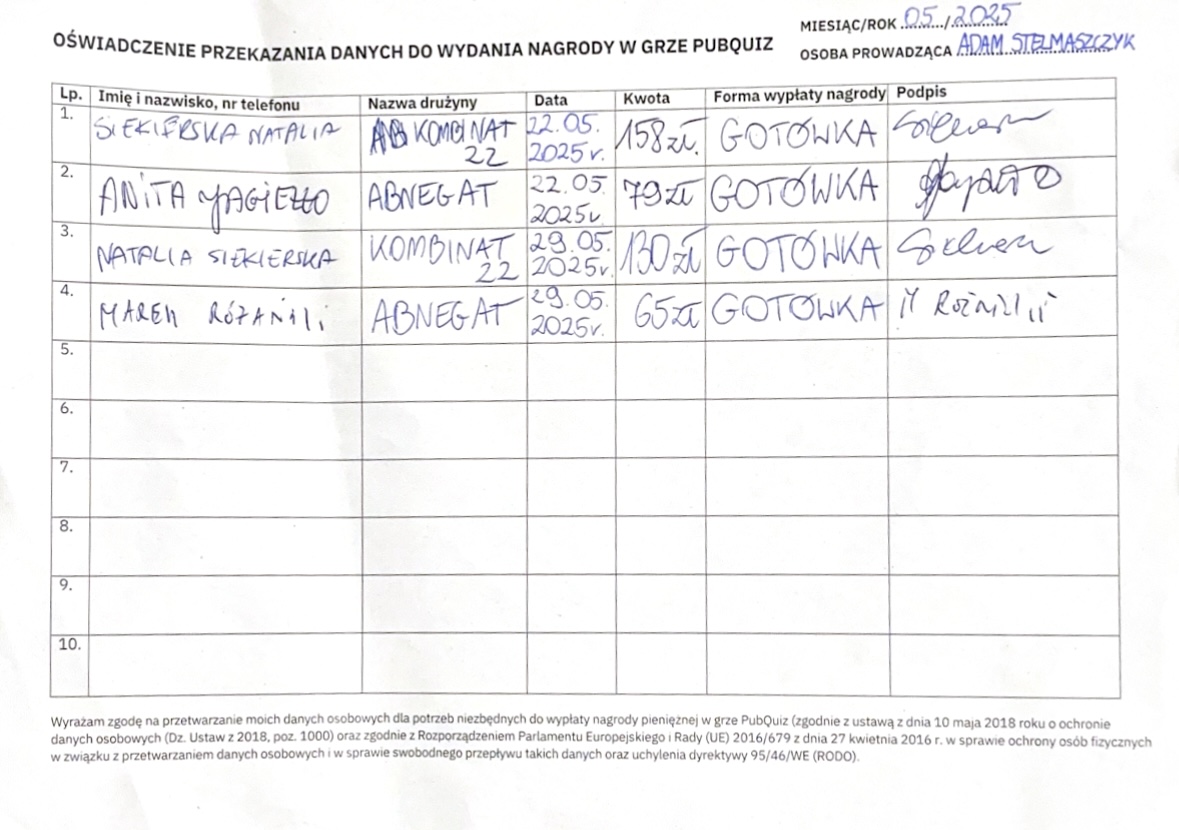 MIESIĄC/ROK 05/2025
OŚWIADCZENIE PRZEKAZANIA DANYCH DO WYDANIA NAGRODY W GRZE PUBQUIZ
OSOBA PROWADZĄCA ADAM STELMASZCZYK
Lp. Imię i nazwisko, nr telefonu Nazwa drużyny Data Kwota Forma wypłaty nagrody Podpis
1. SIEKIERSKA NATALIA KOMBINAT 22 22.05.2025r. 158zł. GOTÓWKA
2. ANITA JAGIEŁŁO ABNEGAT 22.05.2025r. 79zł GOTÓWKA
3. NATALIA SIEKIERSKA KOMBINAT 22 29.05.2025r. 130zł GOTÓWKA
4. MAREK ABNEGAT 29.05.2025r. 65zł GOTÓWKA
5.
6.
7.
8.
9.
10.
Wyrażam zgodę na przetwarzanie moich danych osobowych dla potrzeb niezbędnych do wypłaty nagrody pieniężnej w grze PubQuiz (zgodnie z ustawą z dnia 10 maja 2018 roku o ochronie
danych osobowych (Dz. Ustaw z 2018, poz. 1000) oraz zgodnie z Rozporządzeniem Parlamentu Europejskiego i Rady (UE) 2016/679 z dnia 27 kwietnia 2016 r. w sprawie ochrony osób fizycznych
w związku z przetwarzaniem danych osobowych i w sprawie swobodnego przepływu takich danych oraz uchylenia dyrektywy 95/46/WE (RODO).